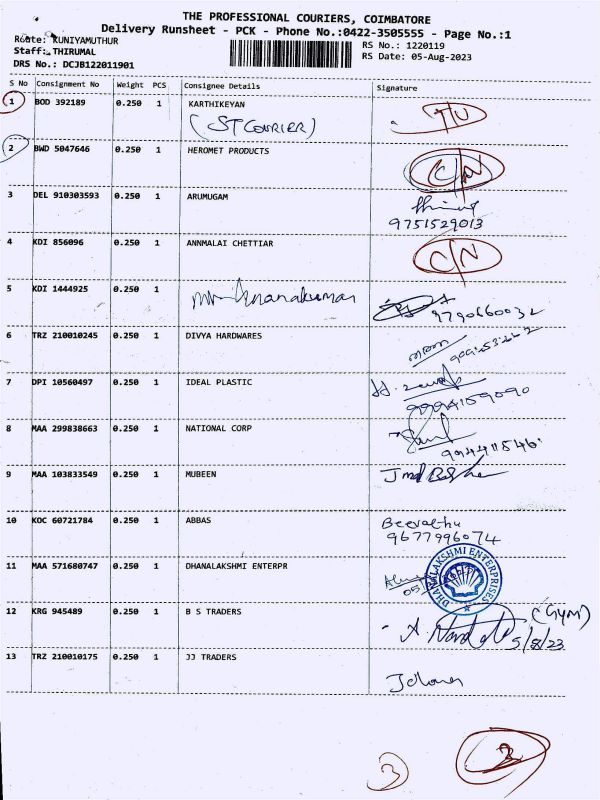 THE PROFESSIONAL COURIERS, COIMBATORE
Delivery Runsheet - PCK - Phone No.:0422-3505555 - Page No.:1
Route: KUNIYAMUTHUR
Staff: THIRUMAL
DRS No.: DCJB122011901
RS No.: 1220119
RS Date: 05-Aug-2023
S No Consignment No Weight PCS Consignee Details Signature
1 BOD 392189 0.250 1 KARTHIKEYAN
(ST COURIER)
2 BWD 5047646 0.250 1 HEROMET PRODUCTS C/N
3 DEL 910303593 0.250 1 ARUMUGAM
9751529013
4 KDI 856096 0.250 1 ANNMALAI CHETTIAR C/N
5 KDI 1444925 0.250 1
6 TRZ 210010245 0.250 1 DIVYA HARDWARES
7 DPI 10560497 0.250 1 IDEAL PLASTIC
9994159090
8 MAA 299838663 0.250 1 NATIONAL CORP
9 MAA 103833549 0.250 1 MUBEEN
10 KOC 60721784 0.250 1 ABBAS
9677996074
11 MAA 571680747 0.250 1 DHANALAKSHMI ENTERPR
DHANALAKSHMI ENTERPRISES
12 KRG 945489 0.250 1 B S TRADERS
(GYM)
5/8/23
13 TRZ 210010175 0.250 1 JJ TRADERS
3